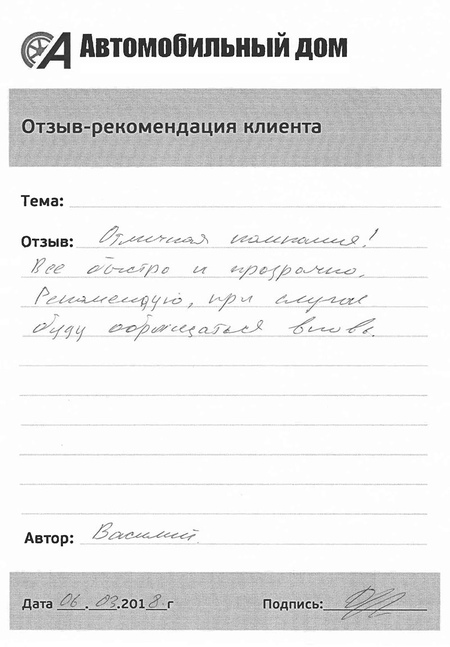 Автомобильный дом
Отзыв-рекомендация клиента
Тема:
Отзыв: Отличная компания!
Все быстро и прозрачно.
Рекомендую, при случае
буду обращаться вновь.
Автор: Василий.
Дата 06.03.2018г Подпись: